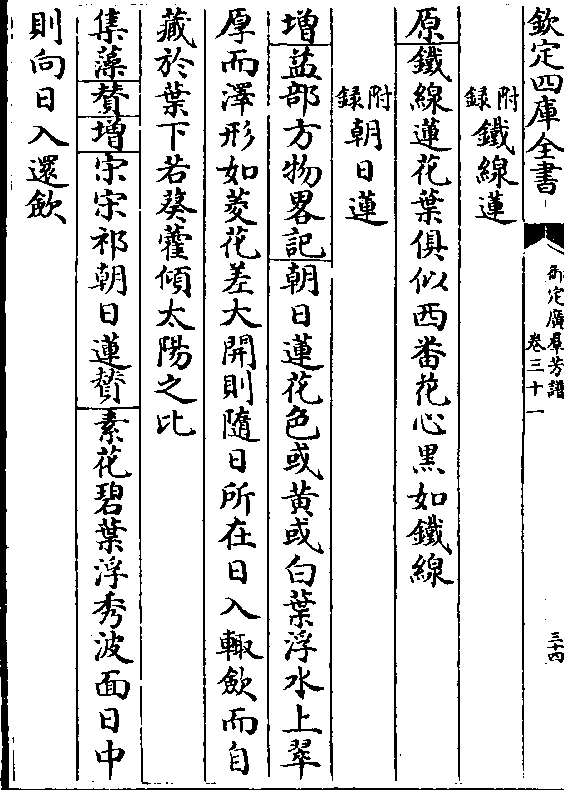 欽定四庫全書
御定廣羣芳譜
卷三十一
三十四
附錄鐵線蓮
原鐵線蓮花葉俱似西番花心黑如鐵線
附錄朝日蓮
增益部方物畧記朝日蓮花色或黃或白葉浮水上翠
厚而澤形如菱花差大開則隨日所在日入輙斂而自
藏於葉下若葵藿傾太陽之比
集藻贊增宋宋祁朝日蓮贊素花碧葉浮秀波面日中
則向日入還斂